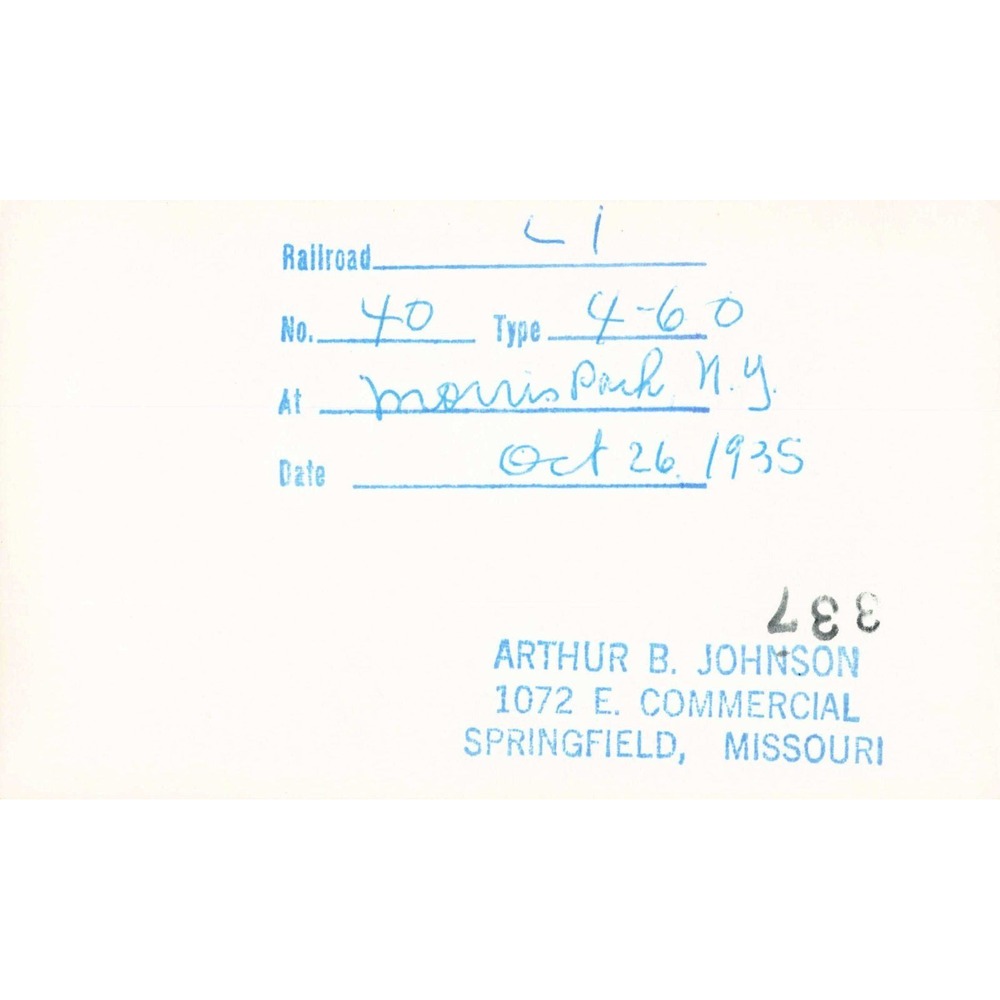 Railroad L I
No. 40 Type 4-6 0
At Morris Park, N.Y.
Date Oct 26. 1935
337
ARTHUR B. JOHNSON
1072 E. COMMERCIAL
SPRINGFIELD, MISSOURI